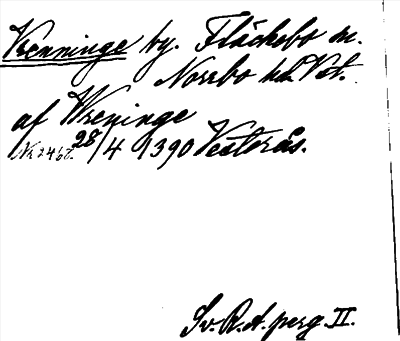 Vrenninge by. Fläckebo sn.
Norrbo hd. Vstl.
af Wreninge
Nr 2462. 28/4 1390 Vesterås.
Sv. R. A. perg. II.